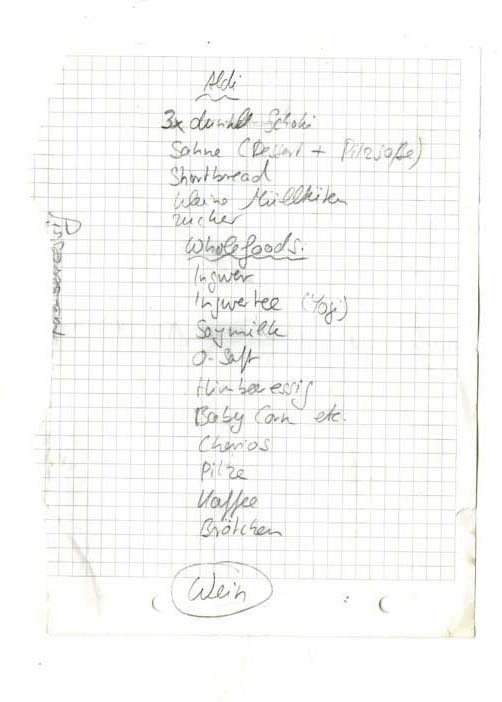 Aldi
3x dunkel Schoki
Sahne (Dessert + Pilzsoße)
Shortbread
kleine Mülltüten
Zucker
Wholefoods:
Ingwer
Ingwertee (Yogi)
Soymilk
O-Saft
Himbeeressig
Baby Corn etc.
Cherios
Pilze
Kaffee
Brötchen
Wein